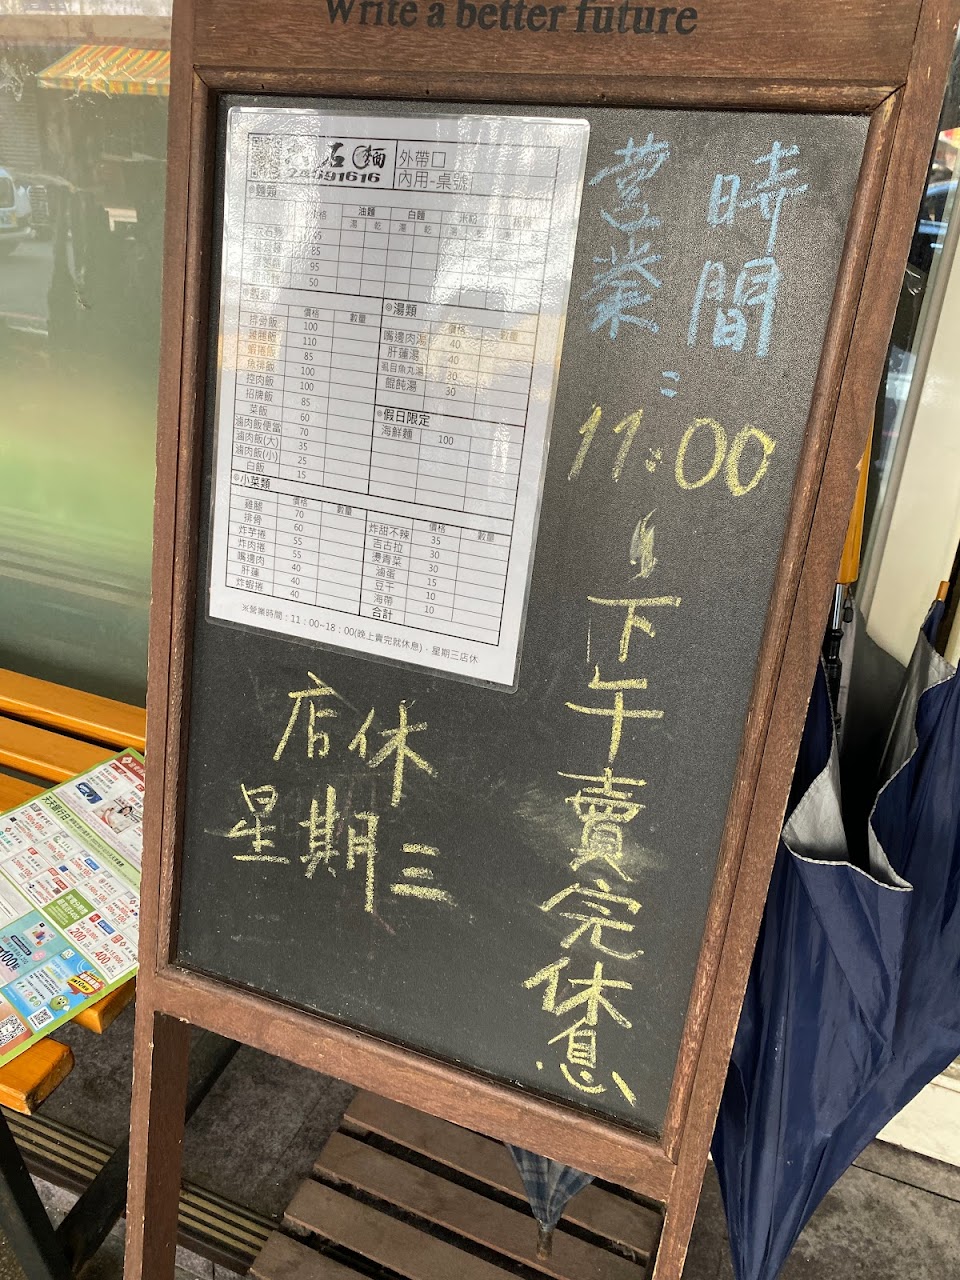 Write a better future
石 麵
24691616
外帶□
內用-桌號
◎麵類
價格 油麵 白麵 米粉
湯 乾 湯 乾 湯 乾
85
95
50
◎飯類
價格 數量
排骨飯 100
雞腿飯 110
蝦捲飯 85
魚排飯 100
控肉飯 100
招牌飯 85
菜飯 60
滷肉飯便當 70
滷肉飯(大) 35
滷肉飯(小) 25
白飯 15
◎湯類
價格 數量
嘴邊肉湯 40
肝蓮湯 40
虱目魚丸湯 30
餛飩湯 30
◎假日限定
海鮮麵 100
◎小菜類
價格 數量
雞腿 70
排骨 60
炸芋捲 55
炸肉捲 55
嘴邊肉 40
肝蓮 40
炸蝦捲 40
價格 數量
炸甜不辣 35
吉古拉 30
燙青菜 30
滷蛋 15
豆干 10
海帶 10
合計
※營業時間：11：00~18：00(晚上賣完就休息)、星期三店休
營業
時間
：
11:00
下午賣完休息
店休
星期三